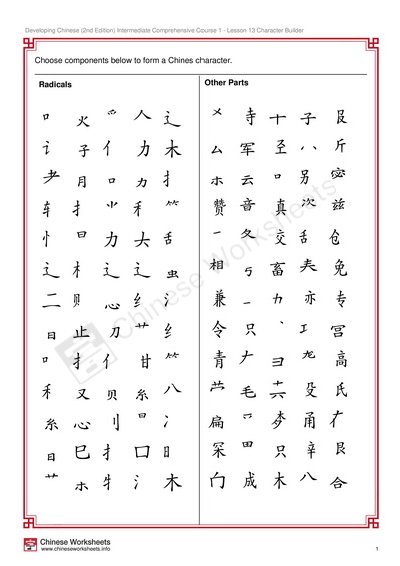 Developing Chinese (2nd Edition) Intermediate Comprehensive Course 1 - Lesson 13 Character Builder
Choose components below to form a Chines character.
Radicals
口 火 癶 人 辶
讠 子 亻 力 木
耂 月 口 力 扌
车 扌 ⺌ 禾 ⺮
忄 日 力 大 舌
辶 木 辶 辶 虫
二 贝 心 纟 氵
日 止 刀 艹 纟
口 扌 亻 甘 ⺮
禾 又 贝 糸 八
糸 心 刂 日 氵
日 巳 扌 口 日
艹 木 牜 氵 木
Other Parts
㐅 寺 十 子 艮
厶 军 圣 八 斤
木 云 口 另 宓
赞 音 真 次 兹
久 交 舌 仓
相 丂 畜 夹 免
兼 力 亦 专
令 只 丶 工 宫
青 𠂇 彐 龙 高
毛 殳 氏
扁 甬
罙 田 只 辛 艮
成 木 八 合
Chinese Worksheets
Chinese Worksheets
www.chineseworksheets.info
1